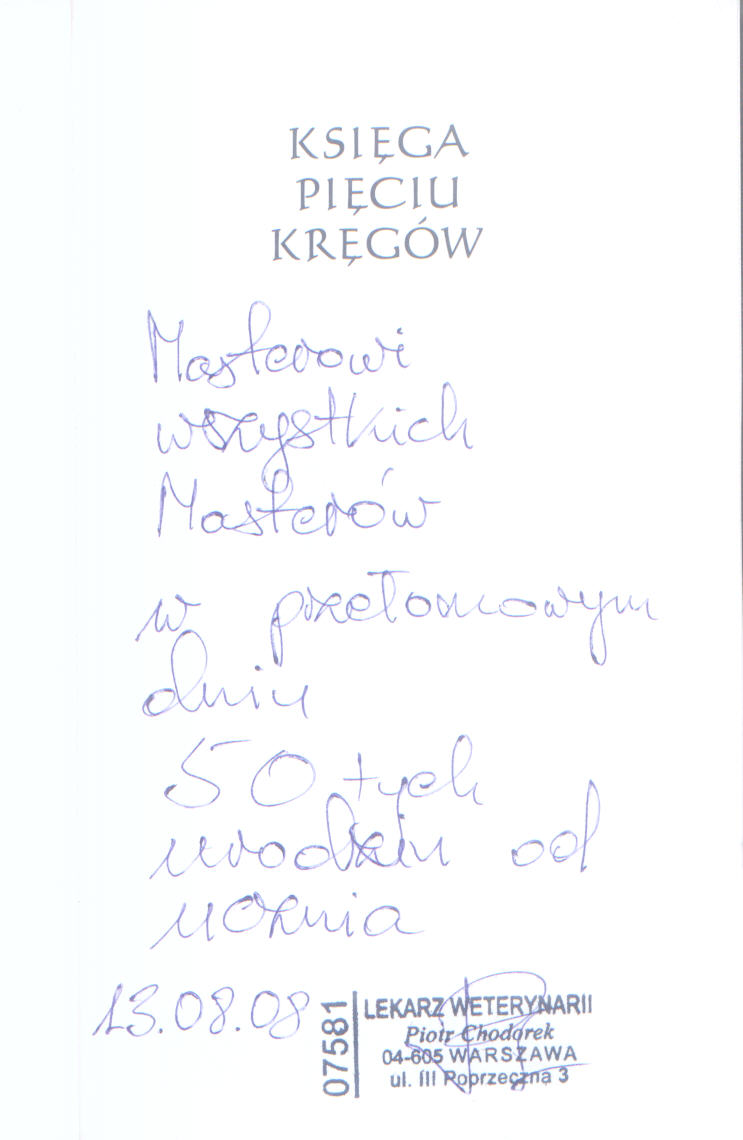 KSIĘGA
PIĘCIU
KRĘGÓW
Masterowi
wszystkich
Masterów
w przełomowym
dniu
50 tych
urodzin od
ucznia
13.08.08
07581
LEKARZ WETERYNARII
Piotr Chodorek
04-605 WARSZAWA
ul. III Poprzeczna 3